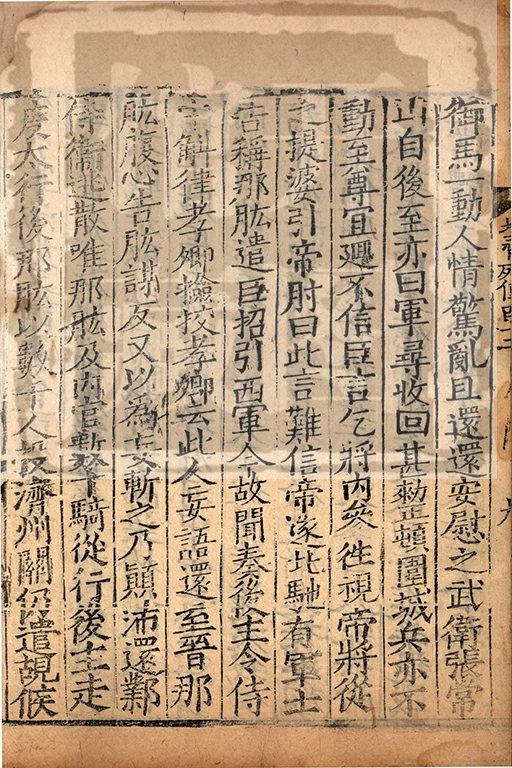 御馬一動人情驚亂且還還安慰之武衛張常
山自後至亦曰軍尋收回甚整頓圍城兵亦不
動至尊宜迴不信臣言乞將內矣徃視帝將從
之提婆引帝肘曰此言難信帝遂北馳有軍士
告稱那肱遣臣招引西軍今故聞奏後主令侍
斛律孝卿撿挍孝卿云此人妄語還至晉那
肱腹心告肱謀反又以為妄斬之乃顛沛還鄴
侍衛逃散唯那肱及內官數十騎從行後主走
度太行後那肱以數千人投濟州關仍遣覘候